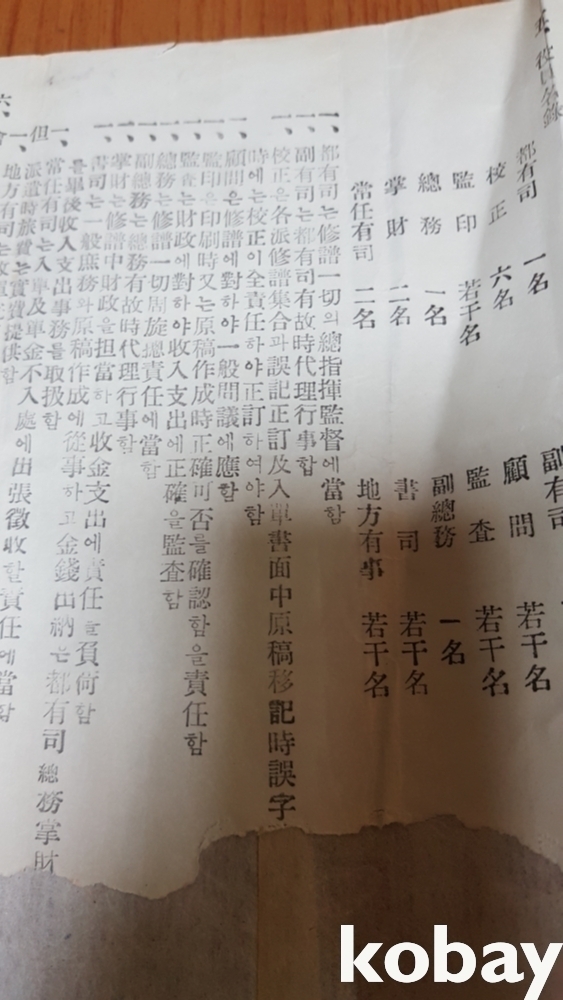 五、役員名錄
都有司 一名
副有司
校正 六名
顧問 若干名
監印 若干名
監査 若干名
總務 一名
副總務 一名
掌財 二名
書司 若干名
常任有司 二名
地方有事 若干名
一、都有司는修譜一切의總指揮監督에當함
一、副有司는都有司有故時代理行事함
一、校正은各派修譜集合과誤記正訂及入單書面中原稿移記時誤字
時에는校正이全責任하야正訂하여야함
一、顧問은修譜에對하야一般問議에應함
一、監印은印刷時又는原稿作成時正確可否를確認함을責任함
一、監査는財政에對하야收入支出에正確을監査함
一、總務는修譜一切周旋摠責任에當함
一、副總務는總務有故時代理行事함
一、掌財는修譜中財政을担當하고收金支出에責任을負荷함
一、書司는一般庶務와原稿作成에從事하고金錢出納은都有司總務掌財
를畢後收入支出事務를取扱함
一、常任有司는入單及單金不入處에出張徵收할責任에當함
但 派遣時旅費는實費提供함
一、地方有司는
六、會
kobay